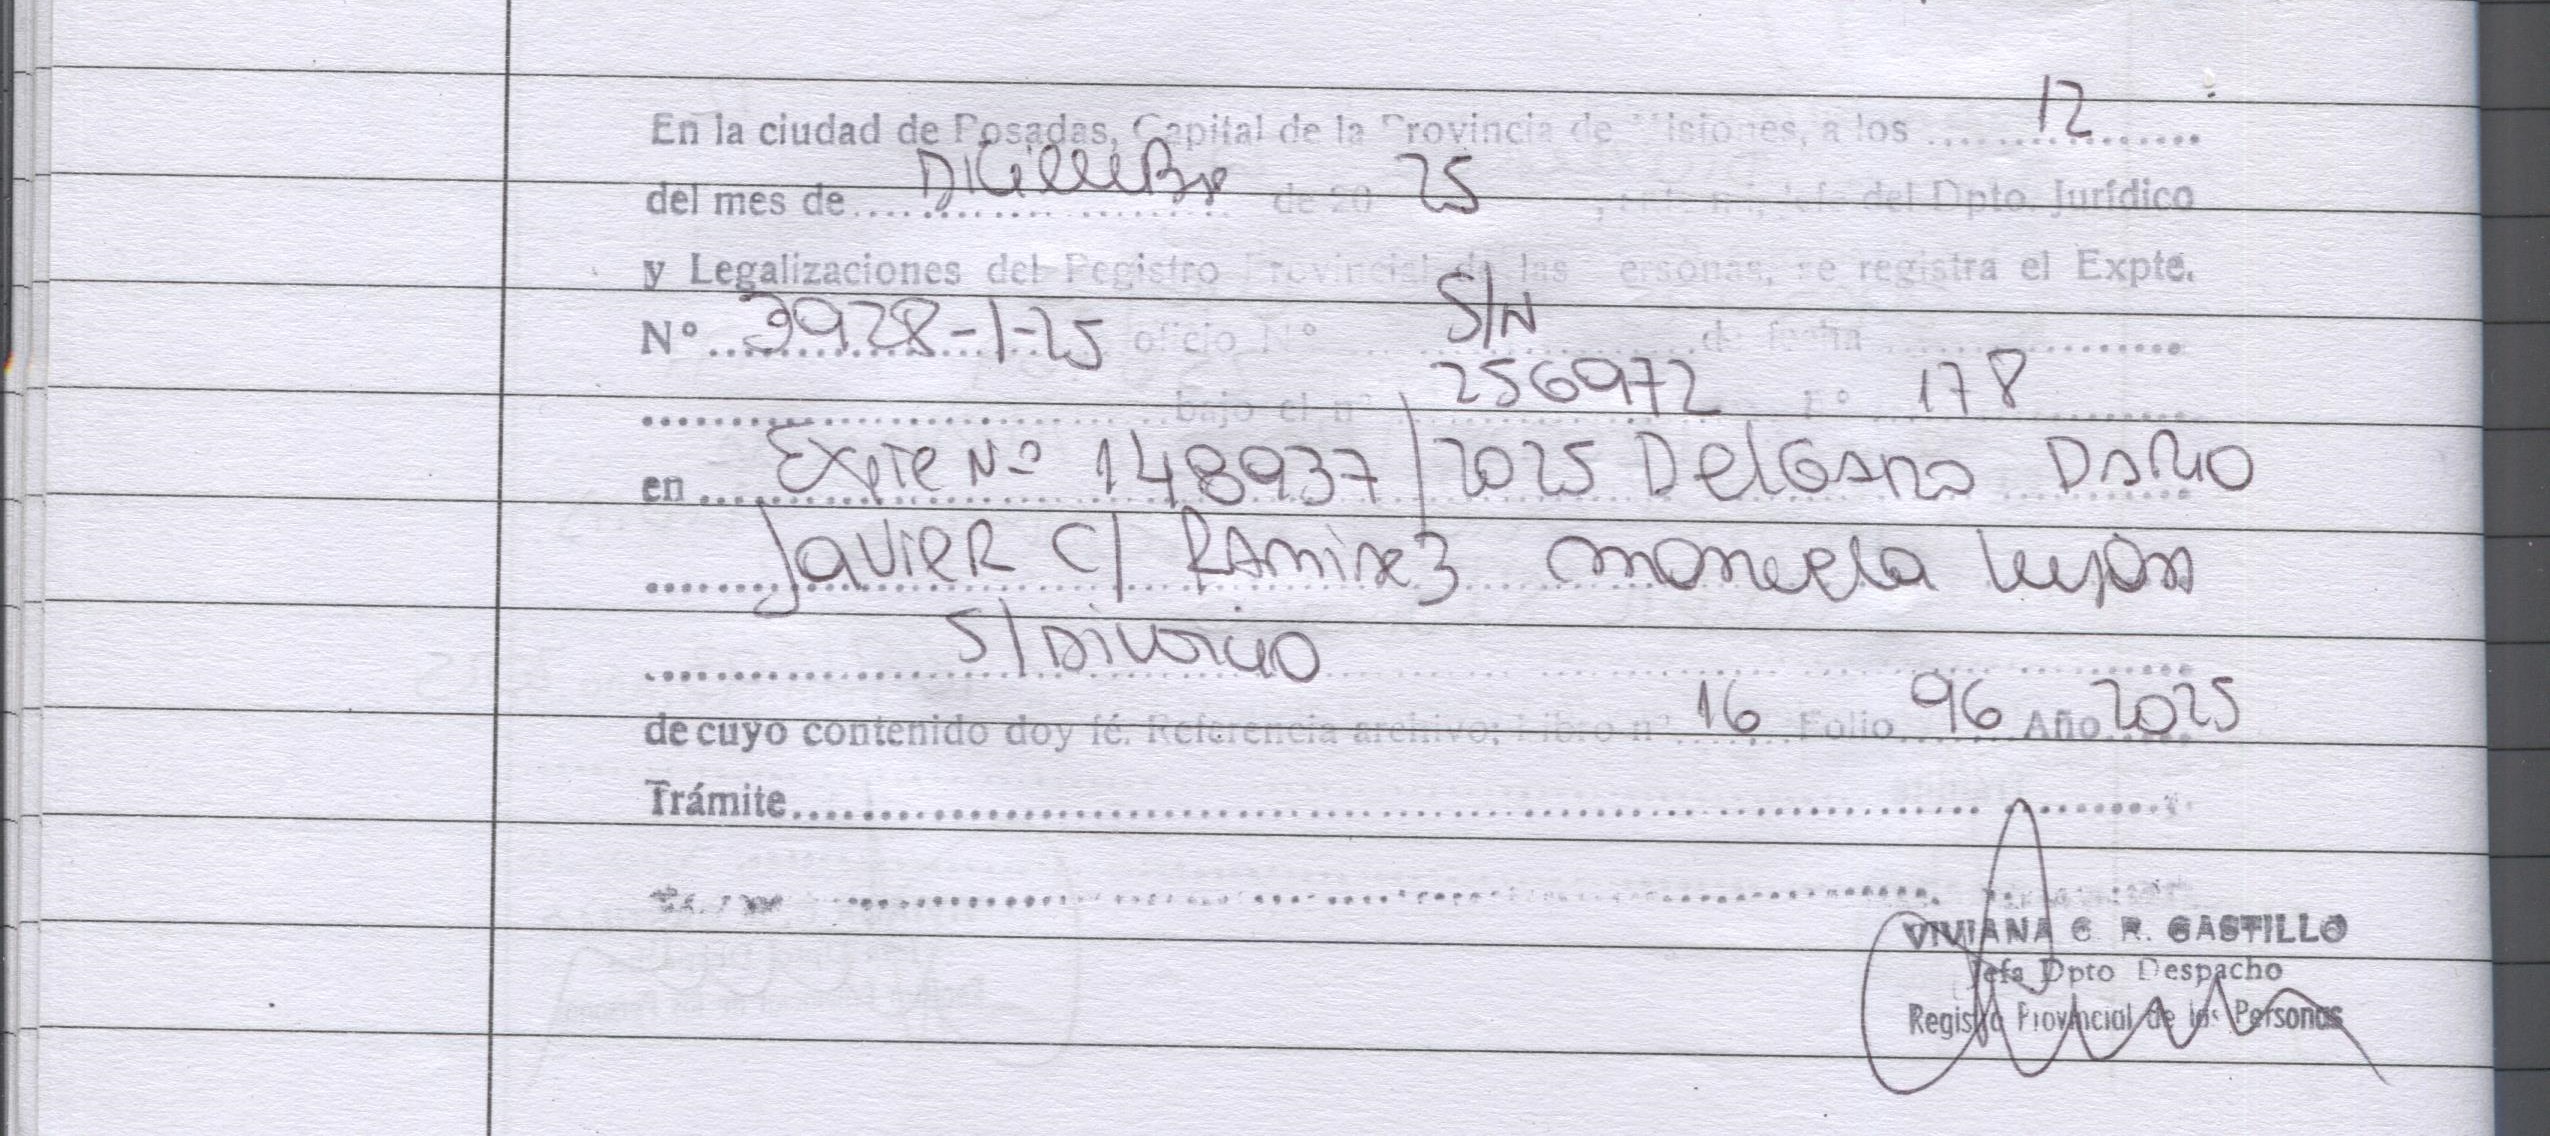 En la ciudad de Posadas, Capital de la Provincia de Misiones, a los 12
del mes de Diciembre de 20 25, ante mi, Jefe del Dpto. Jurídico
y Legalizaciones del Registro Provincial de las Personas, se registra el Expte.
Nº 3928-1-25 oficio Nº S/N de fecha
bajo el nº 256972 Fº 178
en Expte Nº 148937/2025 Delgado Dario
Javier C/ Ramirez Manuela Lujan
S/ Divorcio
de cuyo contenido doy fé. Referencia archivo: Libro nº 16 Folio 96 Año 2025
Trámite
VIVIANA C. R. CASTILLO
Jefa Dpto Despacho
Registro Provincial de las Personas